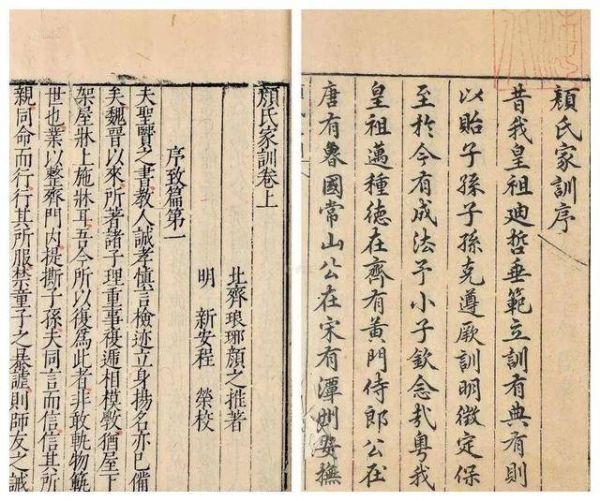 顏氏家訓序
昔我皇祖廸哲垂範立訓有典有則
以貽子孫子孫克遵厥訓明徵定保
至於今有成法予小子欽念㢤粤我
皇祖邁種德在齊有黃門侍郎公在
唐有魯國常山公在宋有潭州安撫
顏氏家訓卷上
北齊琅琊顏之推著
明 新安程 榮校
序致篇第一
夫聖賢之書教人誠孝慎言檢迹立身揚名亦已備
矣魏晉以來所著諸子理重事複遞相模斆猶屋下
架屋牀上施牀耳吾今所以復爲此者非敢軌物範
世也業以整齊門内提撕子孫夫同言而信信其所
親同命而行行其所服禁童子之暴謔則師友之誡